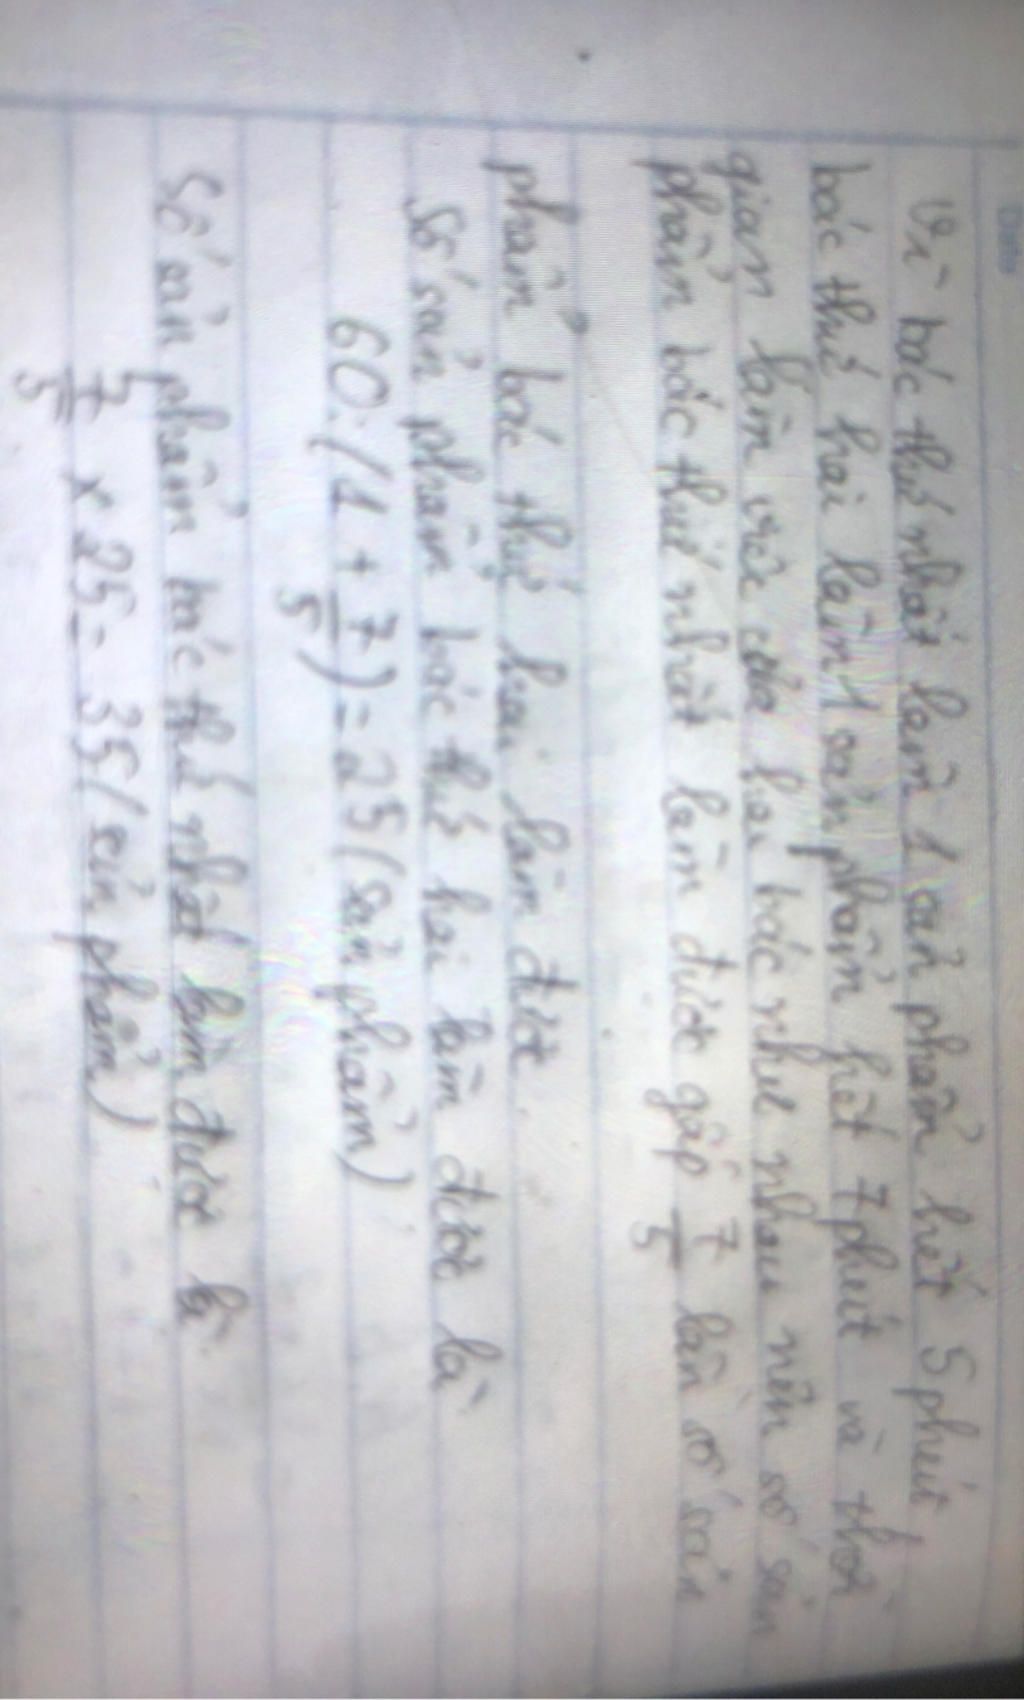 Date
Vì bác thứ nhất làm 1 sản phẩm hết 5 phút
bác thứ hai làm 1 sản phẩm hết 7 phút và thời
gian làm việc của hai bác như nhau nên số sản
phẩm bác thứ nhất làm được gấp 7/5 lần số sản
phẩm bác thứ hai làm được.
Số sản phẩm bác thứ hai làm được là
60:(1 + 7/5) = 25 (sản phẩm)
Số sản phẩm bác thứ nhất làm được là
7/5 x 25 = 35 (sản phẩm)